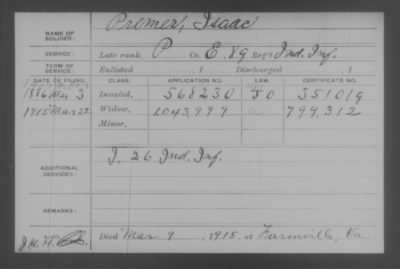 NAME OF SOLDIER: Premer, Isaac
SERVICE: Late rank, P Co. E, 89 Reg't Ind. Inf.
TERM OF SERVICE: Enlisted , 1 Discharged , 1
DATE OF FILING. CLASS. APPLICATION NO. LAW. CERTIFICATE NO.
1886 Mar. 3 Invalid, 568230 351019
1915 Mar 22 Widow, 1043,999 799,312
Minor,
ADDITIONAL SERVICES: I, 26 Ind. Inf.
REMARKS:
Died Mar 9, 1915, at Farmville, Va